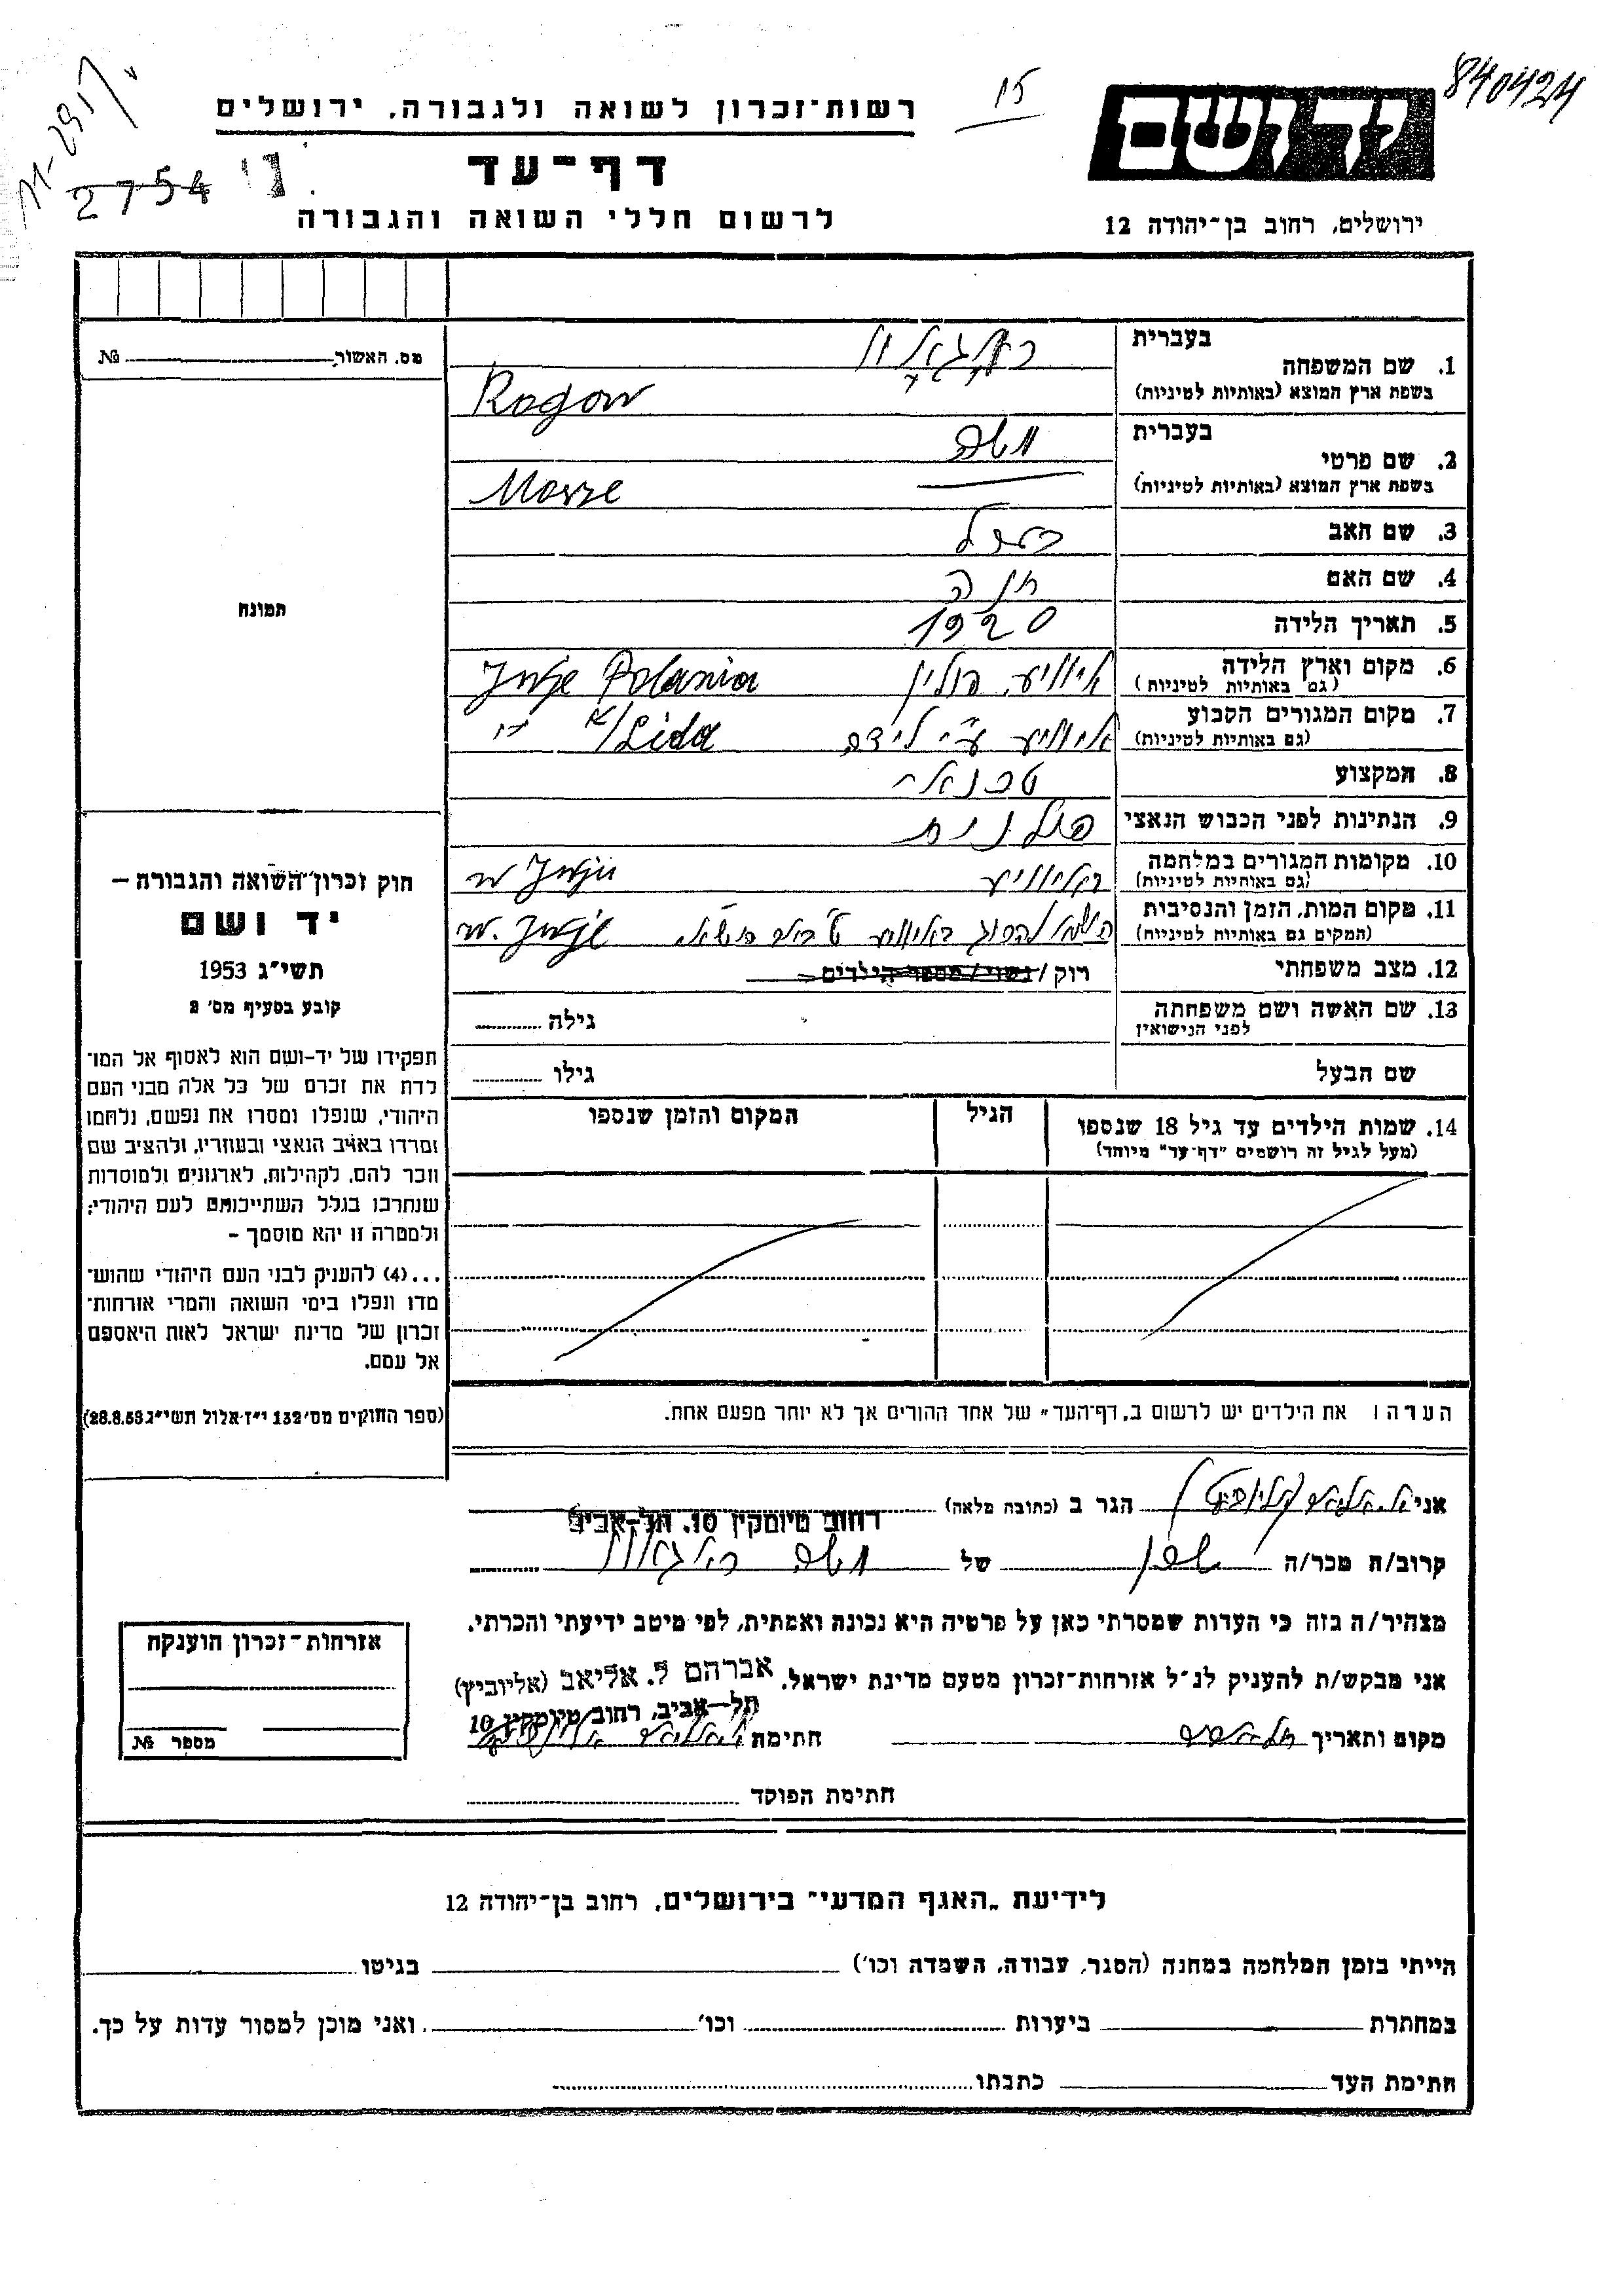 840424
15
יד ושם
רשות-זכרון לשואה ולגבורה, ירושלים
דף-עד
2754
לרשום חללי השואה והגבורה
ירושלים, רחוב בן-יהודה 12
מס. האשור № 
בעברית
1. שם המשפחה
בשפת ארץ המוצא (באותיות לטיניות) Rogow
בעברית משה
2. שם פרטי
בשפת ארץ המוצא (באותיות לטיניות)
3. שם האב
4. שם האם חנה
5. תאריך הלידה 1920
6. מקום וארץ הלידה איוויע, פולין Polania
(גם באותיות לטיניות)
7. מקום המגורים הקבוע איוויע ע"י לידה /Lida
(גם באותיות לטיניות)
8. המקצוע
9. הנתינות לפני הכבוש הנאצי פולנית
10. מקומות המגורים במלחמה באיוויע
(גם באותיות לטיניות)
11. מקום המות, הזמן והנסיבות באיוויע
(המקום גם באותיות לטיניות)
12. מצב משפחתי רוק / נשוי / מספר הילדים
13. שם האשה ושם משפחתה גילה
לפני הנישואין
שם הבעל גילו
14. שמות הילדים עד גיל 18 שנספו הגיל המקום והזמן שנספו
(מעל לגיל זה רושמים "דף-עד" מיוחד)
הערה: את הילדים יש לרשום ב"דף-העד" של אחד ההורים אך לא יותר מפעם אחת.
תמונה
חוק זכרון השואה והגבורה –
יד ושם
תשי"ג 1953
קובע בסעיף מס' 2
תפקידו של יד-ושם הוא לאסוף אל המו-
לדת את זכרם של כל אלה מבני העם
היהודי, שנפלו ומסרו את נפשם, נלחמו
ומרדו באויב הנאצי ובעוזריו, ולהציב שם
וזכר להם, לקהילות, לארגונים ולמוסדות
שנחרבו בגלל השתייכותם לעם היהודי;
ולמטרה זו יהא מוסמך –
...(4) להעניק לבני העם היהודי שהוש-
מדו ונפלו בימי השואה והמרי אזרחות-
זכרון של מדינת ישראל לאות היאספם
אל עמם.
(ספר החוקים מס' 132 י"ז אלול תשי"ג 28.8.53)
אני הגר ב (כתובה מלאה) רחוב טיומקין 10, תל-אביב
קרוב/ה מכר/ה שכן של משה
מצהיר/ה בזה כי העדות שמסרתי כאן על פרטיה היא נכונה ואמתית, לפי מיטב ידיעתי והכרתי.
אני מבקש/ת להעניק לנ"ל אזרחות-זכרון מטעם מדינת ישראל. אברהם י. אליאב (אליוביץ)
תל-אביב, רחוב טיומקין 10
מקום ותאריך תל אביב חתימת
חתימת הפוקד
אזרחות-זכרון הוענקה
מספר №
לידיעת "האגף המדעי" בירושלים, רחוב בן-יהודה 12
הייתי בזמן המלחמה במחנה (הסגר, עבודה, השמדה וכו') בגיטו
במחתרת ביערות וכו' ואני מוכן למסור עדות על כך.
חתימת העד כתבתו